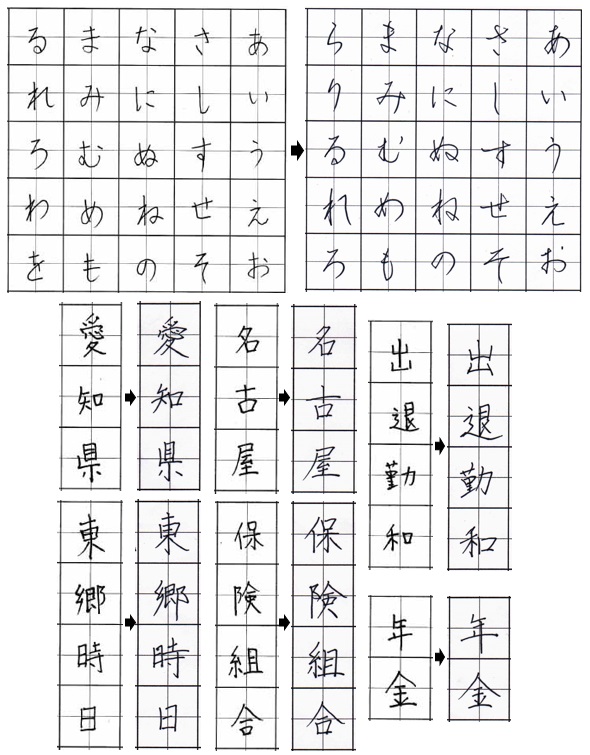 あいうえお
さしすせそ
なにぬねの
まみむめも
るれろわを
あいうえお
さしすせそ
なにぬねの
まみむめも
らりるれろ
愛知県
愛知県
名古屋
名古屋
出退勤和
出退勤和
東郷時日
東郷時日
保険組合
保険組合
年金
年金